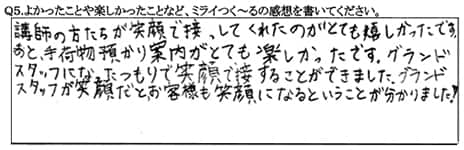 Q5.よかったことや楽しかったことなど、ミライつく～るの感想を書いてください。
講師の方たちが笑顔で接してくれたのがとても嬉しかったです。
あと、手荷物預かり案内がとても楽しかったです。グランド
スタッフになったつもりで笑顔で接することができました。グランド
スタッフが笑顔だとお客様も笑顔になるということが分かりました!